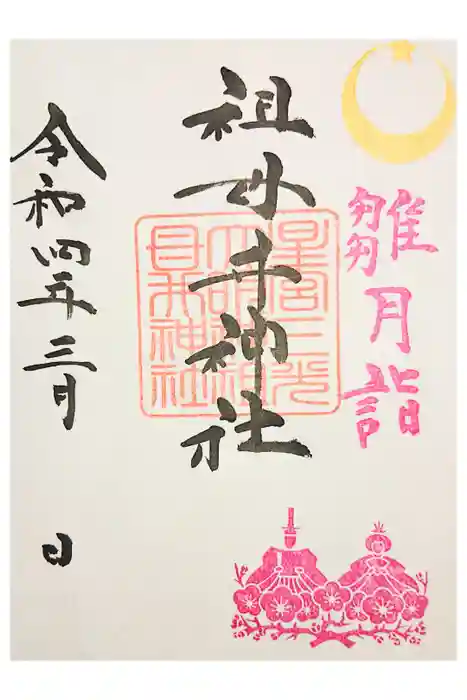 雛月詣
祖母井神社
星宮三光
大明神祖
母井神社
令和四年三月　日